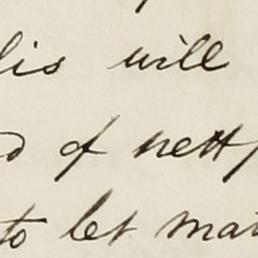 his will
d of nett
to let mat